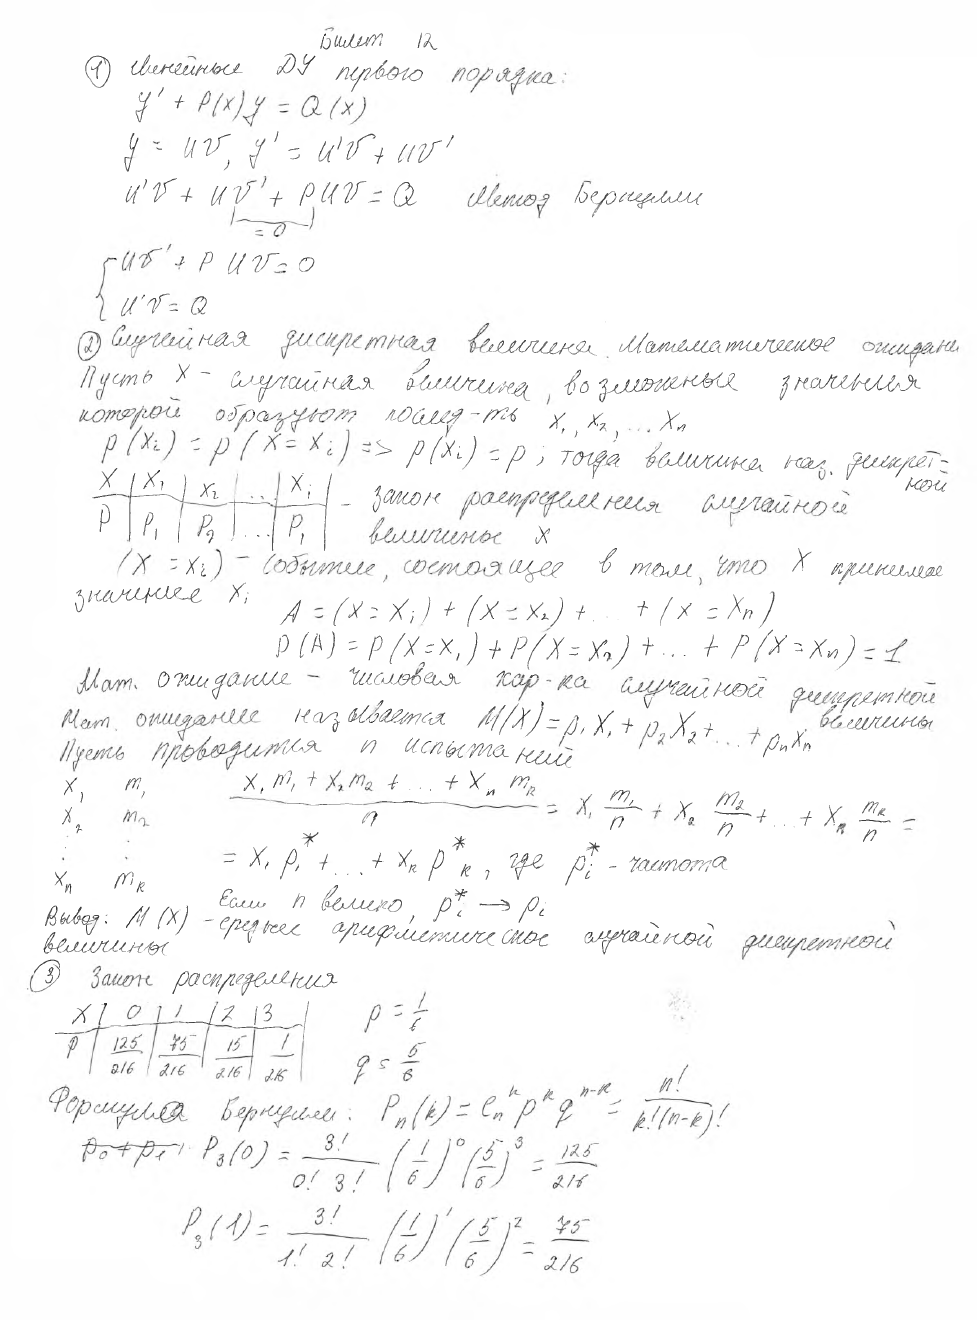 Билет 12
① Линейные ДУ первого порядка:
y' + P(x)y = Q(x)
y = uv, y' = u'v + uv'
u'v + uv' + Puv = Q Метод Бернулли
= 0
{ uv' + Puv = 0
u'v = Q
② Случайная дискретная величина. Математическое ожидани
Пусть X – случайная величина, возможные значения
которой образуют послед-ть x₁, x₂, ... xₙ
p(xᵢ) = p(X = xᵢ) => p(xᵢ) = p, тогда величина наз. дискрет-
ной
X | x₁ | x₂ | ... | xᵢ – закон распределения случайной
P | P₁ | P₂ | ... | P₁ величины X
(X = xᵢ) – событие, состоящее в том, что X принимае
значение xᵢ
A = (X = Xᵢ) + (X = X₂) + ... + (X = Xₙ)
P(A) = P(X = X₁) + P(X = X₂) + ... + P(X = Xₙ) = 1
Мат. ожидание – числовая хар-ка случайной дискретной
величины
Мат. ожидание называется M(X) = p₁X₁ + p₂X₂ + ... + pₙXₙ
Пусть проводится n испытаний
x₁ m₁
x₂ m₂
⋮ ⋮
xₙ mₖ
(x₁m₁ + x₂m₂ + ... + xₙmₖ)/n = x₁ m₁/n + x₂ m₂/n + ... + xₙ mₖ/n =
= x₁p₁* + ... + xₖp*ₖ, где pᵢ* - частота
Если n велико, pᵢ* → pᵢ
Вывод: M(X) – среднее арифметическое случайной дискретной
величины
③ Закон распределения
X | 0 | 1 | 2 | 3 p = 1/6
P | 125/216 | 75/216 | 15/216 | 1/216 q = 5/6
Формула Бернулли: Pₙ(k) = Cₙᵏ pᵏ qⁿ⁻ᵏ = n!/k!(n-k)!
p₀ + p₁ P₃(0) = 3!/0! 3! (1/6)⁰ (5/6)³ = 125/216
P₃(1) = 3!/1! 2! (1/6)¹ (5/6)² = 75/216